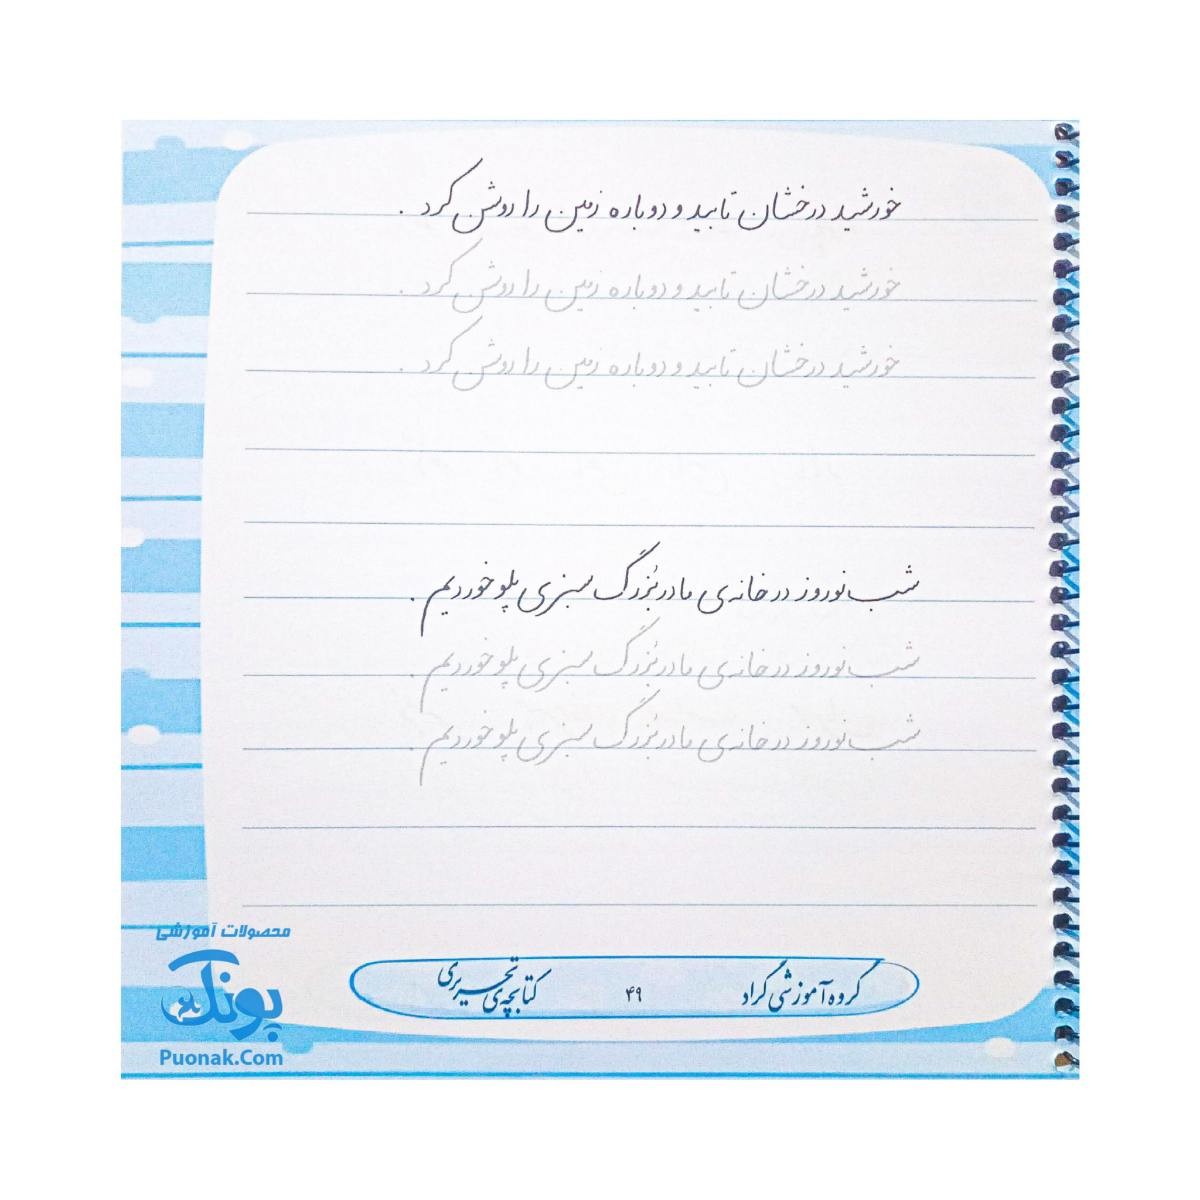 خورشید درخشان تابید و دوباره زمین را روشن کرد .
خورشید درخشان تابید و دوباره زمین را روشن کرد .
خورشید درخشان تابید و دوباره زمین را روشن کرد .
شب نوروز در خانه‌ی مادربُزرگ سبزی پلو خوردیم .
شب نوروز در خانه‌ی مادربُزرگ سبزی پلو خوردیم .
شب نوروز در خانه‌ی مادربُزرگ سبزی پلو خوردیم .
گروه آموزشی گراد ۴۹ کتابچه‌ی تحریری
محصولات آموزشی
پونک
Puonak.Com